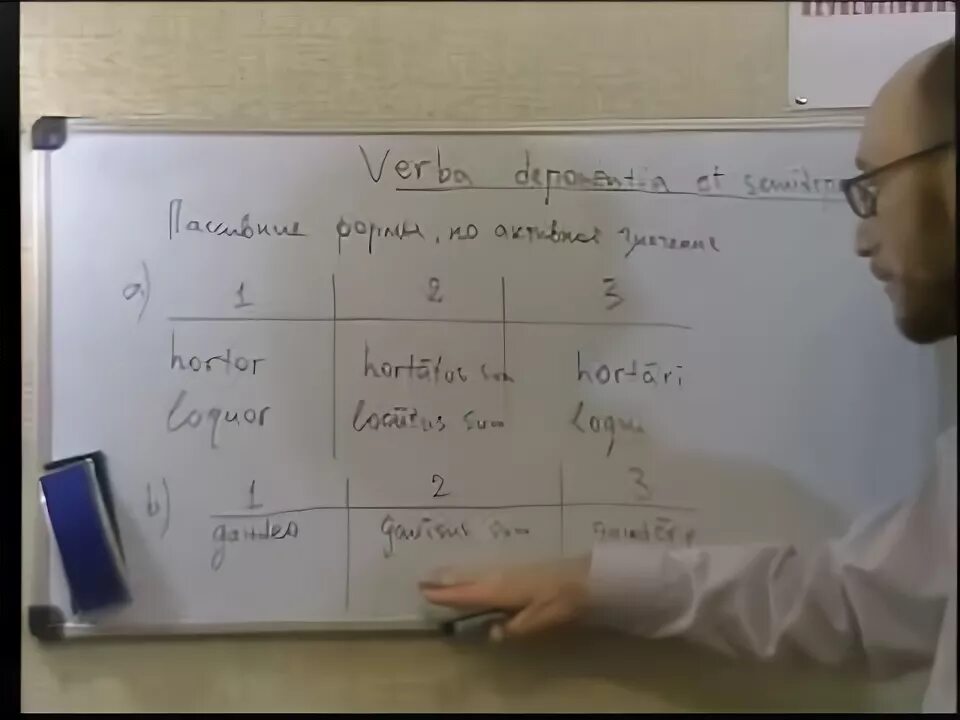 Verba deponentia et semidepo
Пассивные формы, но активное значение
a) 1 2 3
hortor hortātus sum hortāri
loquor locūtus sum loqui
b) 1 2 3
gaudeo gavīsus sum gaudēre